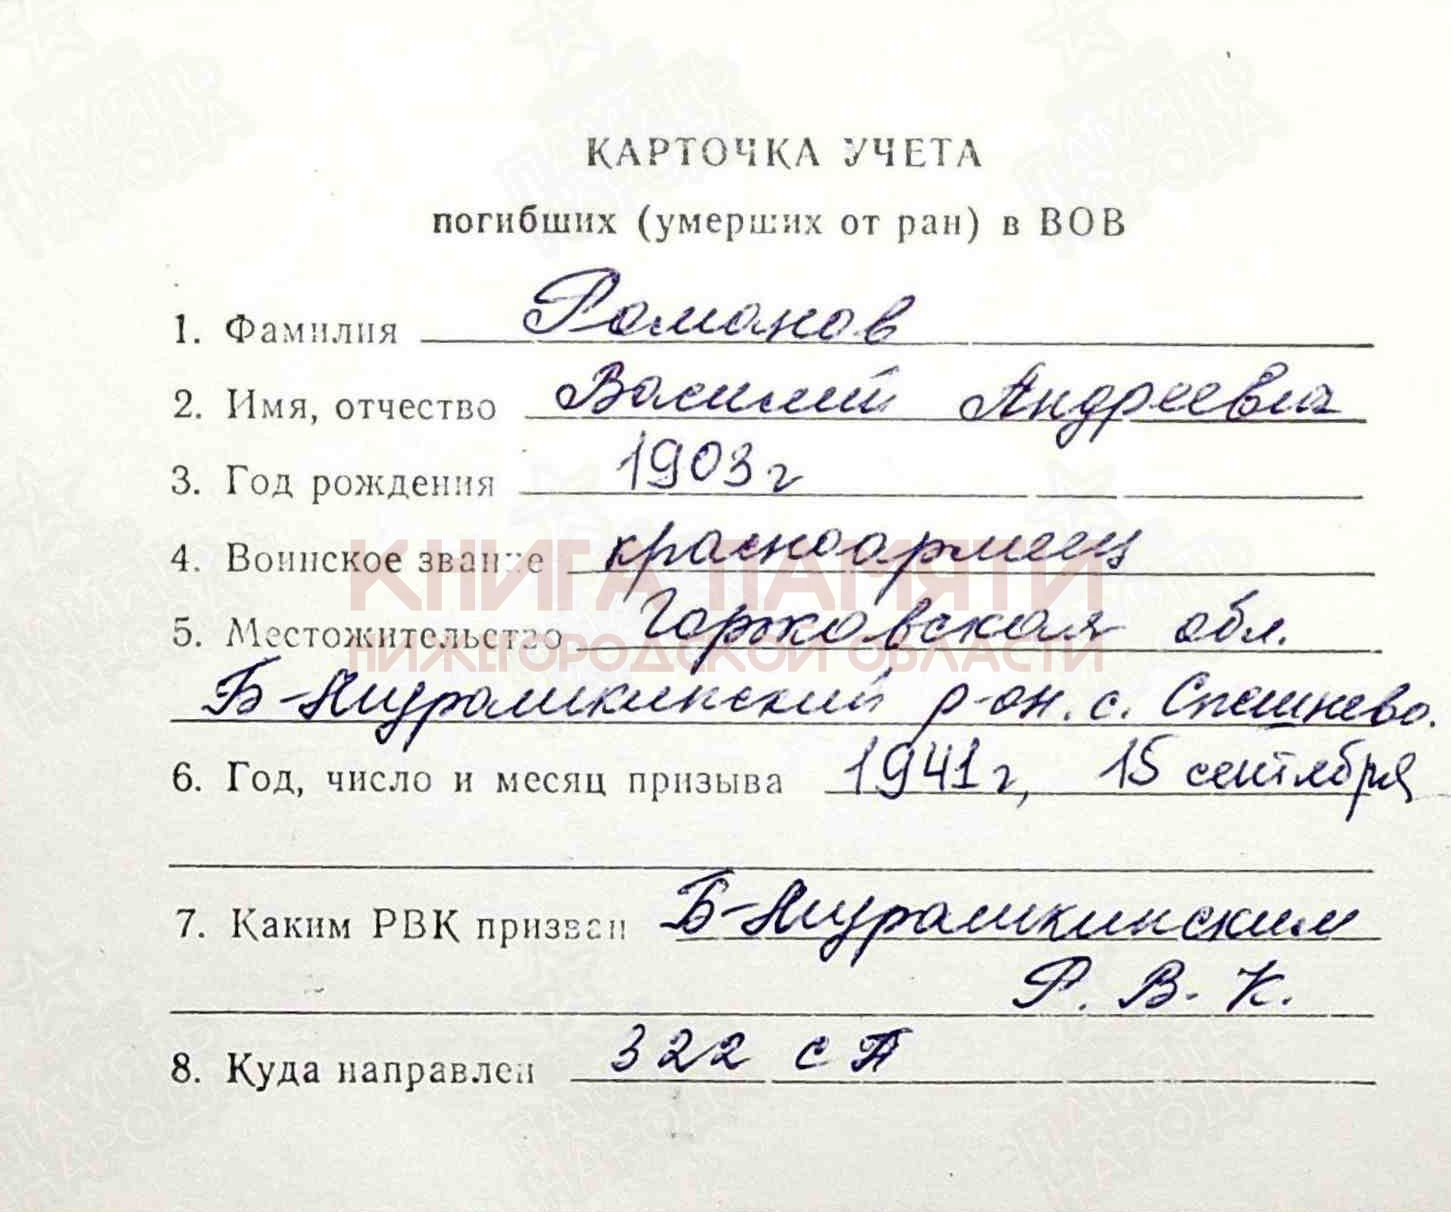 КАРТОЧКА УЧЕТА
погибших (умерших от ран) в ВОВ
1. Фамилия Романов
2. Имя, отчество Василий Андреевич
3. Год рождения 1903 г
4. Воинское звание красноармеец
КНИГА ПАМЯТИ
5. Местожительство Горьковская обл.
НИЖЕГОРОДСКОЙ ОБЛАСТИ
Б-Мурашкинский р-он. с. Спешнево.
6. Год, число и месяц призыва 1941 г, 15 сентября
7. Каким РВК призван Б-Мурашкинским
Р. В. К.
8. Куда направлен 322 сп